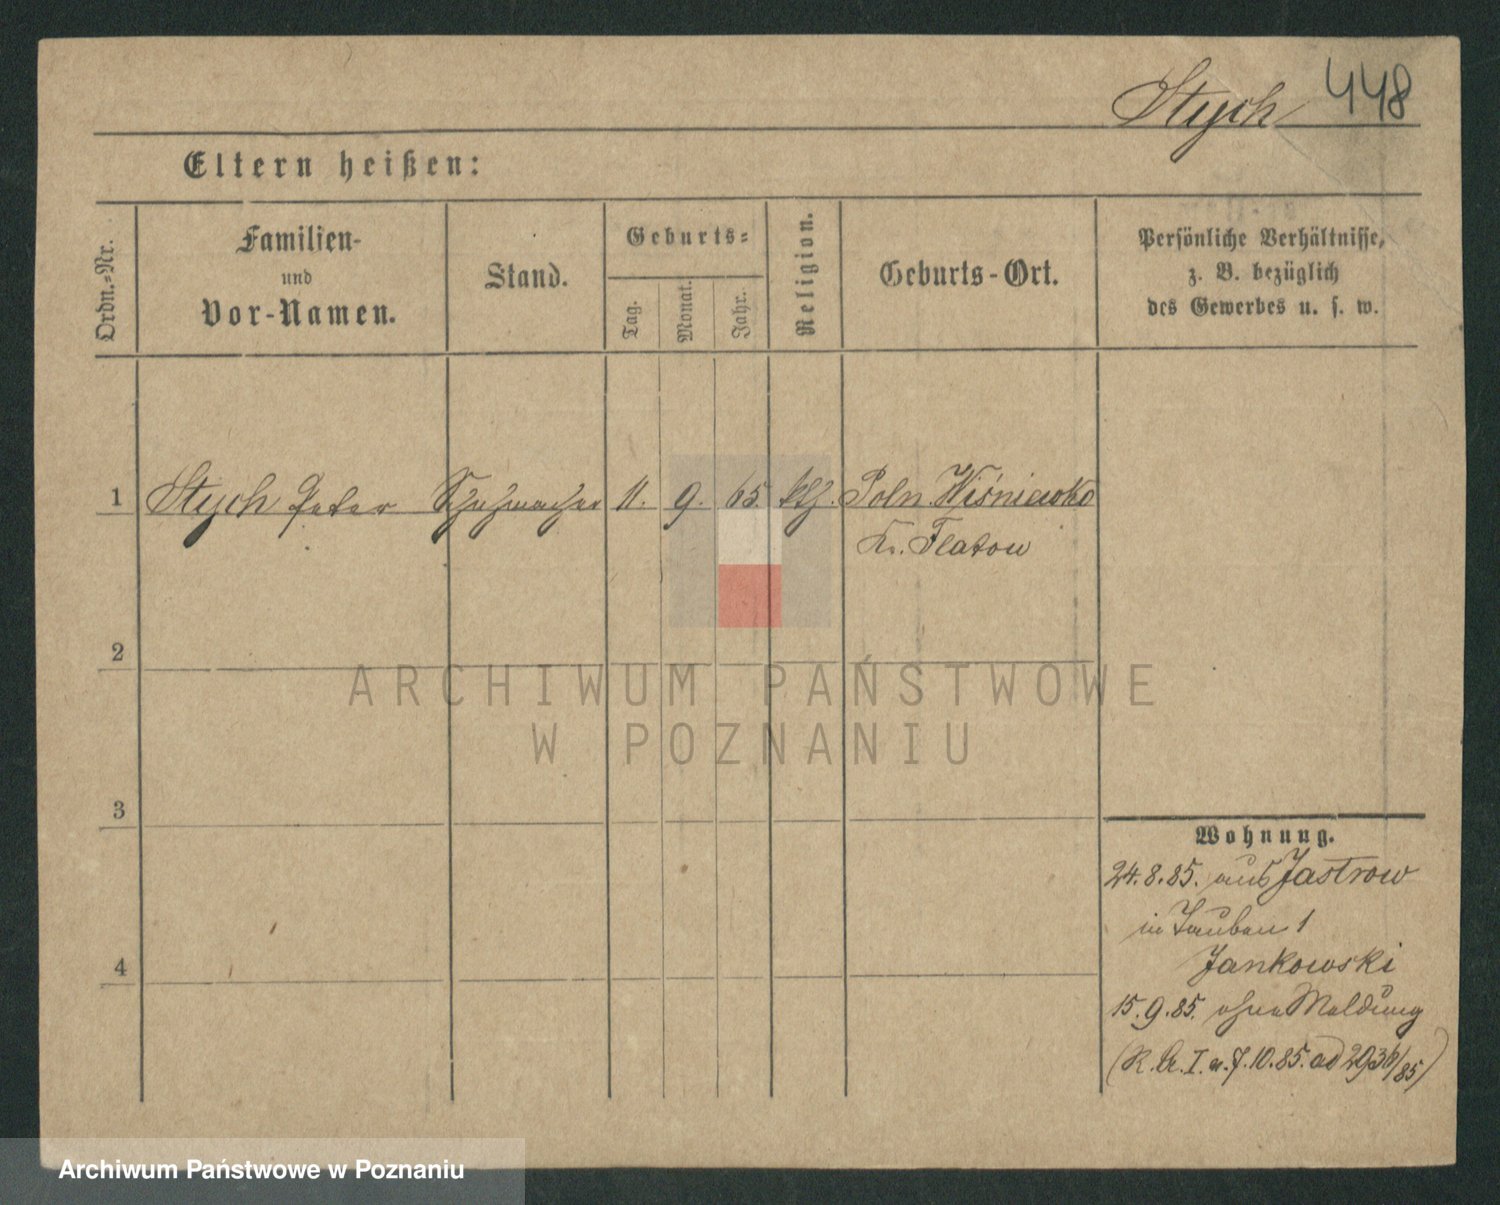 Stych 448
Eltern heißen:
Ordn.-Nr.
Familien-
und
Vor-Namen.
Stand.
Geburts-
Tag.
Monat.
Jahr.
Religion.
Geburts-Ort.
Persönliche Verhältnisse,
z. B. bezüglich
des Gewerbes u. s. w.
1 Stych Peter Schuhmacher 11. 9. 65. kth. Poln. Wiśniewko
Kr. Flatow
2
3
4
Wohnung.
24.8.85. aus Jastrow
in Tauben 1
Jankowski
15.9.85. ohne Meldung
(R. A. I. v. 7.10.85. ad 2936/85)
ARCHIWUM PAŃSTWOWE
W POZNANIU
Archiwum Państwowe w Poznaniu